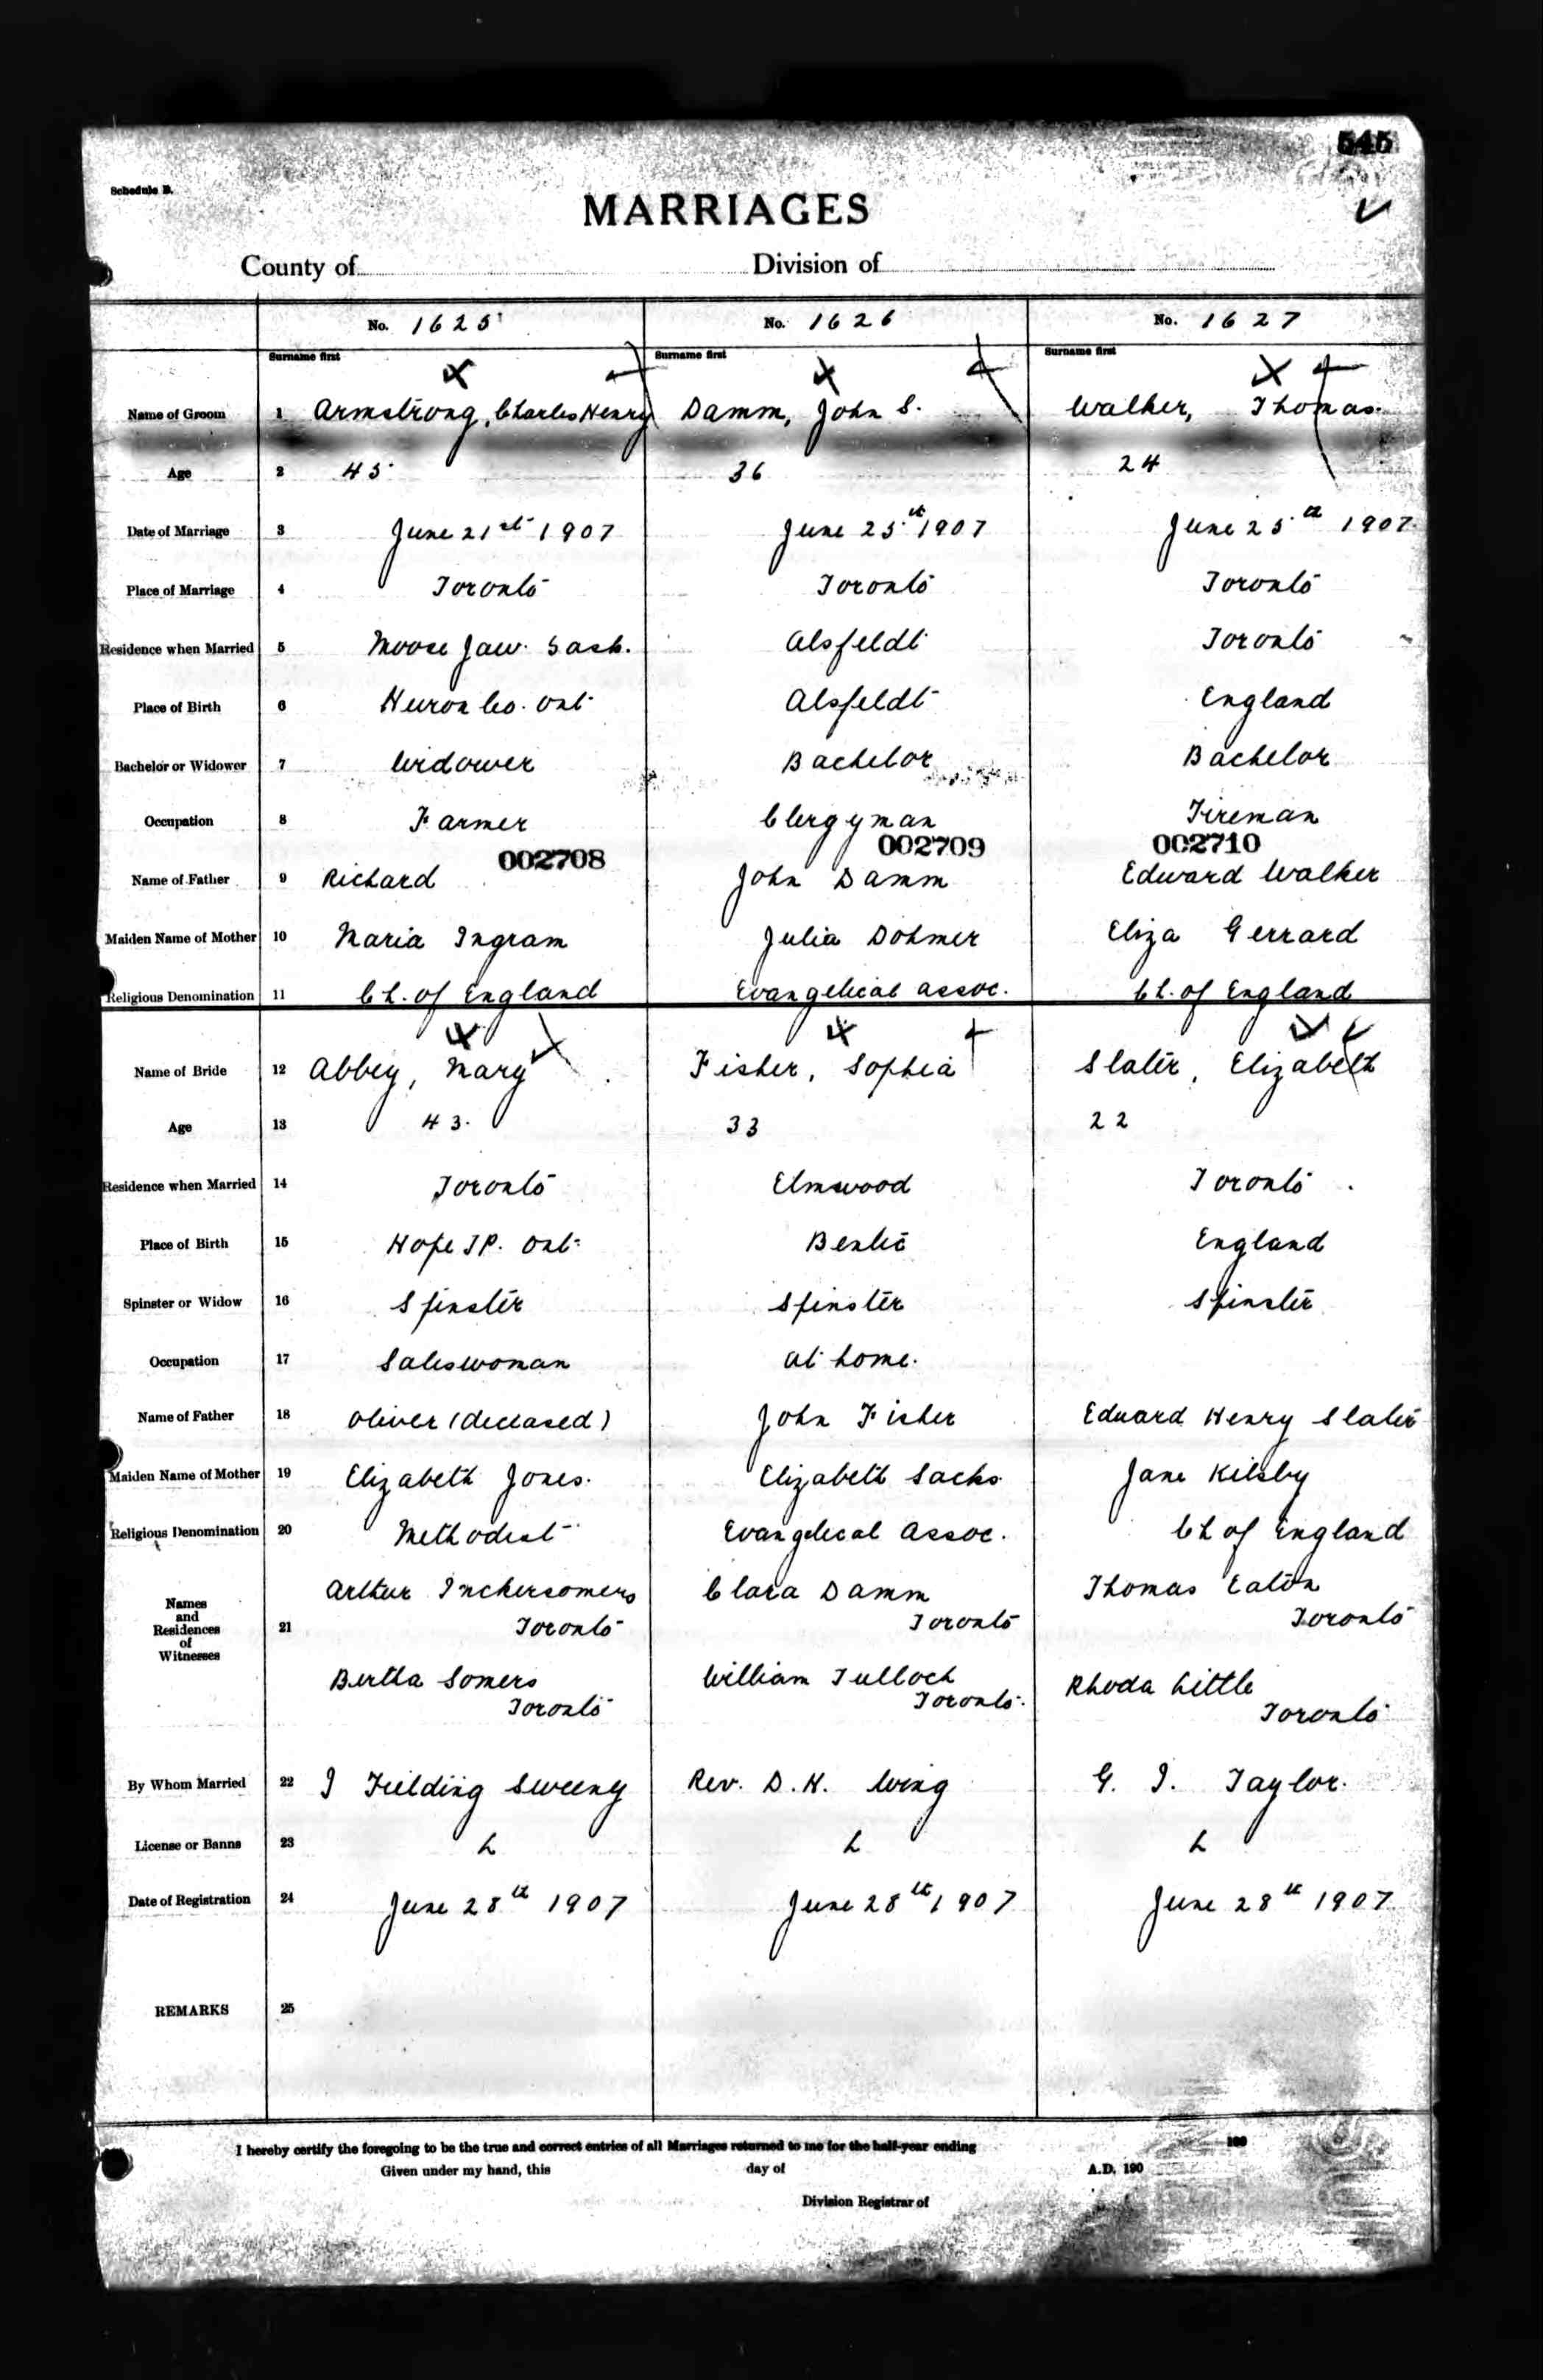 545
Schedule B.
MARRIAGES
County of Division of
No. 1625 No. 1626 No. 1627
Surname first Surname first Surname first
Name of Groom 1 Armstrong, Charles Henry Damm, John S. Walker, Thomas.
Age 2 45 36 24
Date of Marriage 3 June 21st 1907 June 25th 1907 June 25th 1907
Place of Marriage 4 Toronto Toronto Toronto
Residence when Married 5 Moose Jaw. Sask. Alsfeldt Toronto
Place of Birth 6 Huron Co. Ont Alsfeldt England
Bachelor or Widower 7 Widower Bachelor Bachelor
Occupation 8 Farmer Clergyman Fireman
002708 002709 002710
Name of Father 9 Richard John Damm Edward Walker
Maiden Name of Mother 10 Maria Ingram Julia Dohmer Eliza Gerrard
Religious Denomination 11 Ch. of England Evangelical Assoc. Ch. of England
Name of Bride 12 Abbey, Mary Fisher, Sophia Slater, Elizabeth
Age 13 43. 33 22
Residence when Married 14 Toronto Elmwood Toronto
Place of Birth 15 Hope TP. Ont. England
Spinster or Widow 16 Spinster Spinster Spinster
Occupation 17 Saleswoman At home.
Name of Father 18 Oliver (deceased) John Fisher Edward Henry Slater
Maiden Name of Mother 19 Elizabeth Jones. Elizabeth Sachs Jane Kilsby
Religious Denomination 20 Methodist Evangelical Assoc. Ch of England
Names and Residences of Witnesses 21 Arthur Clara Damm Thomas Eaton
Toronto Toronto Toronto
Bertha Somers William Tulloch Rhoda Little
Toronto Toronto. Toronto
By Whom Married 22 J Fielding Sweeny Rev. D. H. Wing G. I. Taylor.
License or Banns 23 L L L
Date of Registration 24 June 28th 1907 June 28th 1907 June 28th 1907
REMARKS 25
I hereby certify the foregoing to be the true and correct entries of all Marriages returned to me for the half-year ending 190
Given under my hand, this day of A.D. 190
Division Registrar of